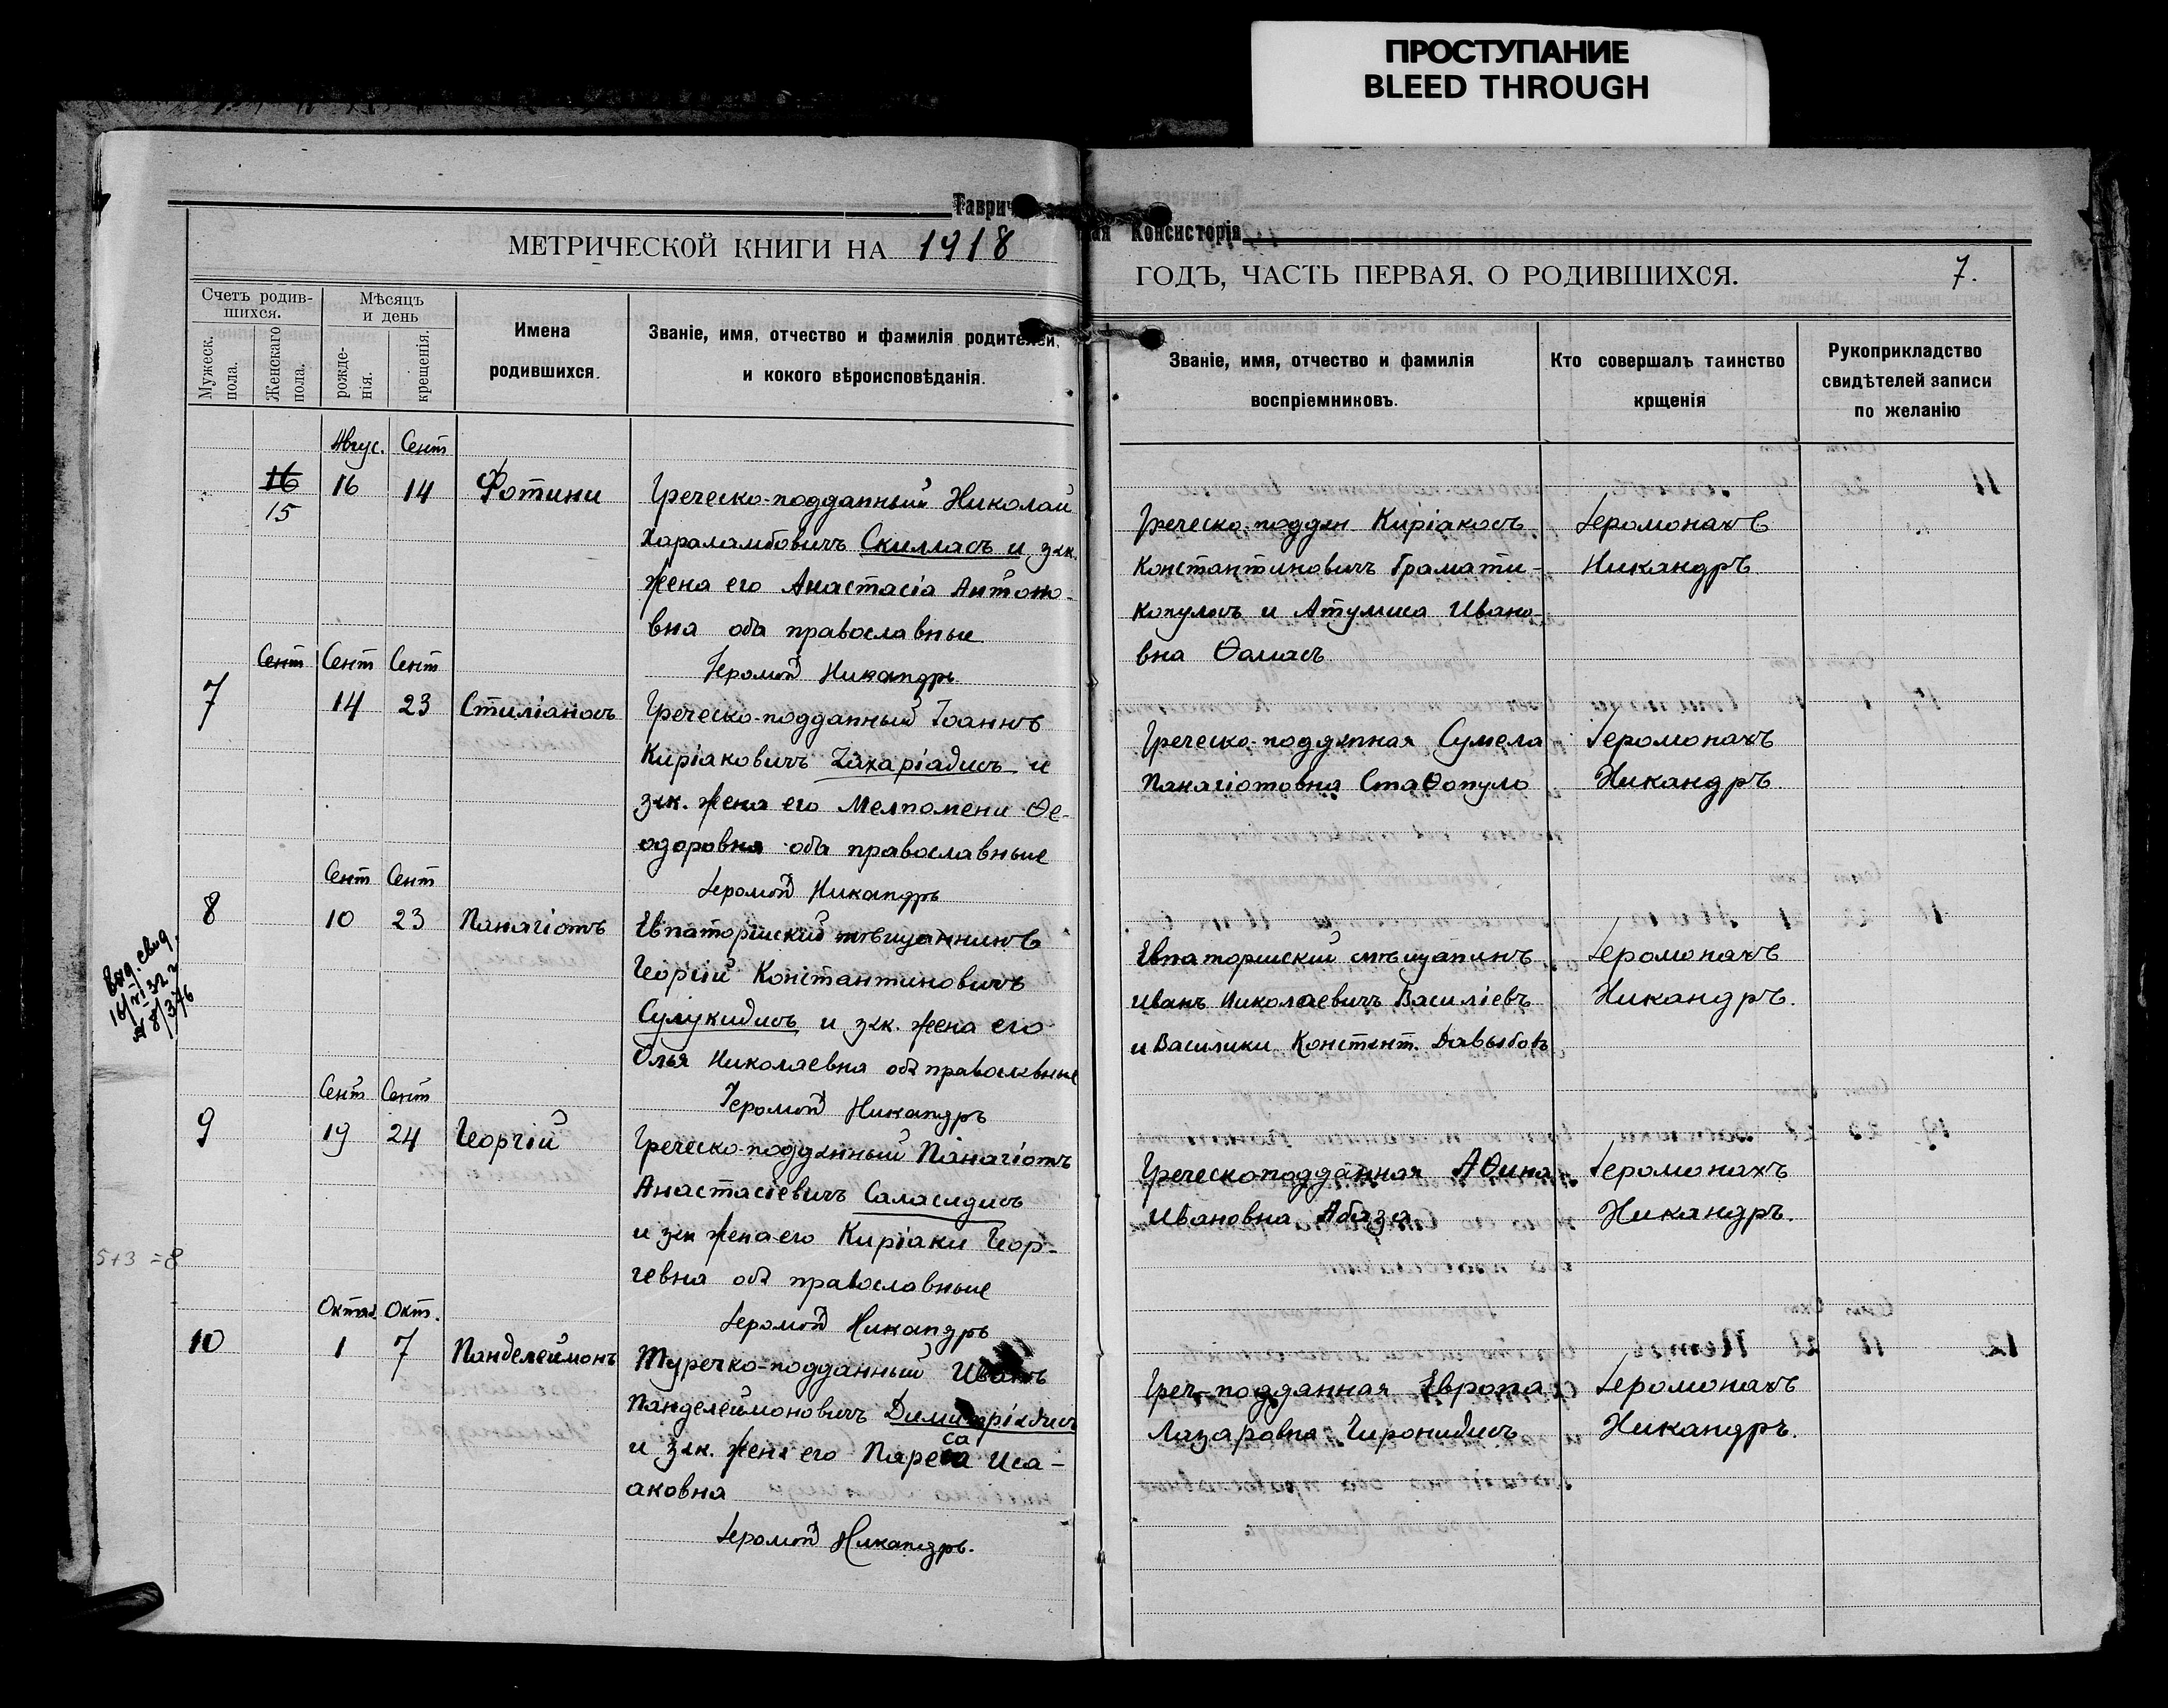 ПРОСТУПАНИЕ
BLEED THROUGH
Таврич
ная Консисторія
МЕТРИЧЕСКОЙ КНИГИ НА 1918
ГОДЪ, ЧАСТЬ ПЕРВАЯ. О РОДИВШИХСЯ.
7.
Счетъ родив-
шихся.
Мужеск.
пола.
Женскаго
пола.
Мѣсяцъ
и день
рожде-
нія.
крещенія.
Имена
родившихся.
Званіе, имя, отчество и фамилія родителей,
и кокого вѣроисповѣданія.
Званіе, имя, отчество и фамилія
воспріемниковъ.
Кто совершалъ таинство
крщенія
Рукоприкладство
свидѣтелей записи
по желанію
Авгус. Сент
16 16 14 Фотини
15
Греческо-подданный Николай
Хараламбовичъ Скилласъ и зак.
жена его Анастасія Антоно-
вна оба православные
Іеромон Никандръ
Греческо-поддан Киріакосъ
Константиновичъ Грамати-
копулосъ и Атумиса Ивано-
вна Ѳомасъ
Іеромонахъ
Никандръ
Сент Сент Сент
7 14 23 Стиліаносъ
Греческо-подданный Іоаннъ
Киріаковичъ Захаріадисъ и
зак. жена его Мелпомени Ѳе-
одоровна оба православные
Іеромон Никандръ
Греческо-подданная Сумела
Панагіотовна Стаѳопуло
Іеромонахъ
Никандръ.
Сент Сент
8 10 23 Панагіотъ
Евпаторійский мѣщаннинъ
Георгій Константиновичъ
Сулукидисъ и зак. жена его
Олья Николаевна оба православные
Іеромон Никандръ
Евпаторийский мѣщанинъ
Иванъ Николаевичъ Василіевъ
и Василики Констант. Давыбовъ
Іеромонахъ
Никандръ.
Выд. свид.
16/VI 32 г
№ 8/376
Сент Сент
9 19 24 Георгій
Греческо-подданный Панагіотъ
Анастасіевичъ Саласидисъ
и зак жена его Киріаки Геор-
гевна оба православные
Іеромон Никандръ
Греческоподданная Аѳина
Ивановна Абаза
Іеромонахъ
Никандръ.
5+3=8
Октяб. Окт.
10 1 7 Панделеймонъ
Турецко-подданный Иванъ
Панделеймоновичъ Димитріадисъ
и зак. жена его Пареса Иса-
аковна
Іеромон Никандръ.
Греч-подданная Европа
Лазаровна Чиронидисъ
Іеромонахъ
Никандръ.